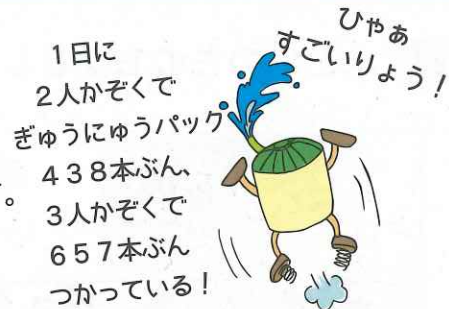 1日に
2人かぞくで
ぎゅうにゅうパック
438本ぶん、
3人かぞくで
657本ぶん
つかっている！
ひゃあ
すごいりょう！
。